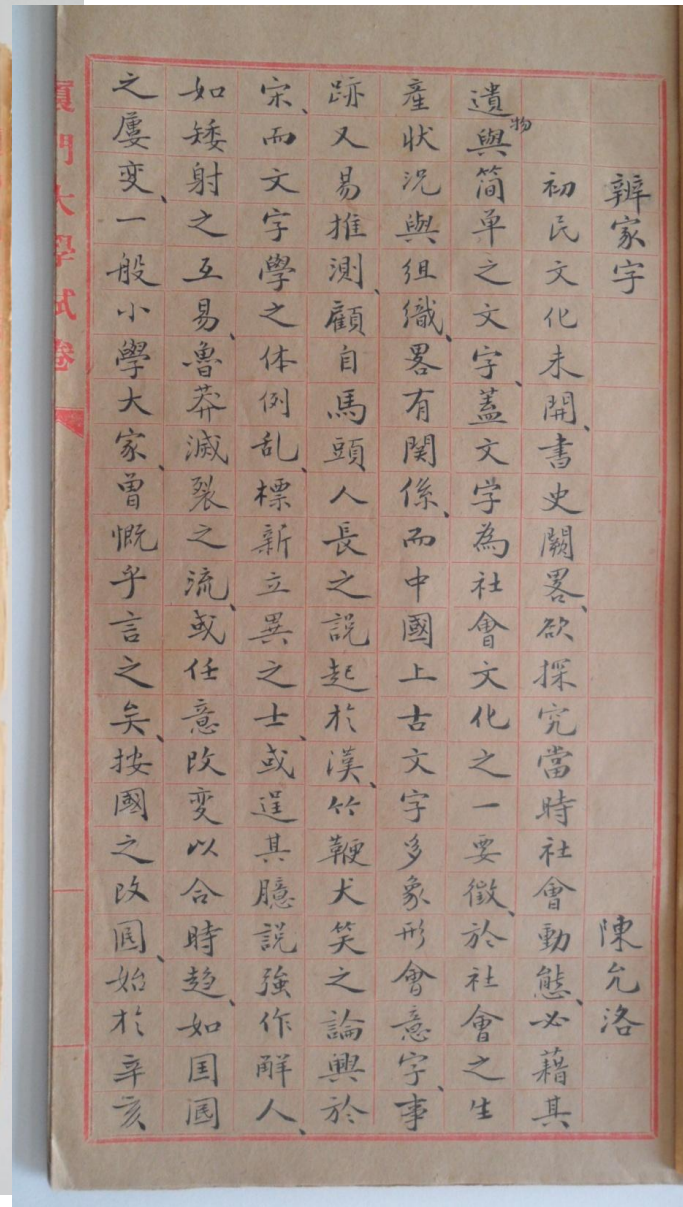 辨家字　陳允洛
初民文化未開、書史闕畧、欲探究當時社會動態、必藉其
遺物與简单之文字、蓋文学為社會文化之一要徵、於社會之生
產狀況與组織、畧有関係、而中國上古文字多象形會意字、事
跡又易推測、顧自馬頭人長之説起於漢、竹鞭犬笑之論興於
宋、而文字學之体例乱、標新立異之士、或逞其臆説強作解人、
如矮射之互易、魯莽滅裂之流、或任意改変以合時趋、如囯圀
之屢变、一般小學大家、曾慨乎言之矣、按國之改圀、始於辛亥
厦門大學試卷